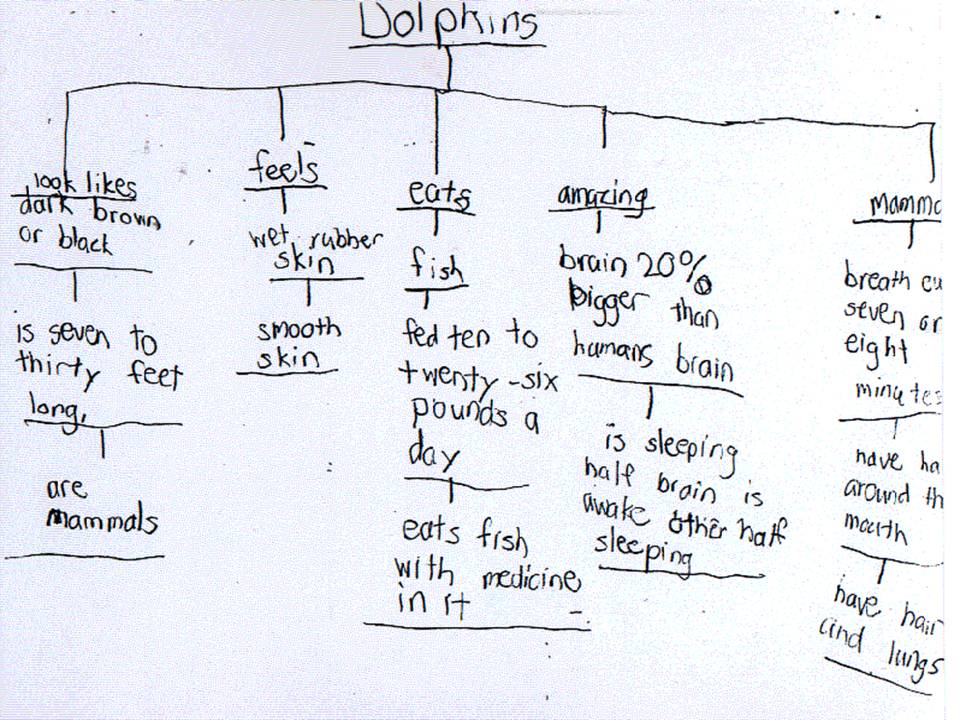 Dolphins
look likes
dark brown
or black
is seven to
thirty feet
long,
are
mammals
feels
wet rubber
skin
smooth
skin
eats
fish
fed ten to
twenty-six
pounds a
day
eats fish
with medicine
in it
amazing
brain 20%
bigger than
humans brain
is sleeping
half brain is
awake other half
sleeping
mamma
breath
seven or
eight
minutes
have ha
around th
mouth
have hair
and lungs